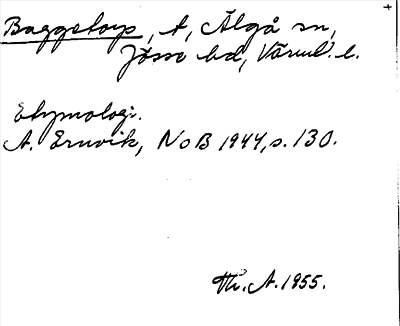 Baggetorp, t, Älgå sn,
Jösse hd, Värml. l.
Etymologi.
A. Ernvik, NoB 1944, s. 130.
Th. A. 1955.